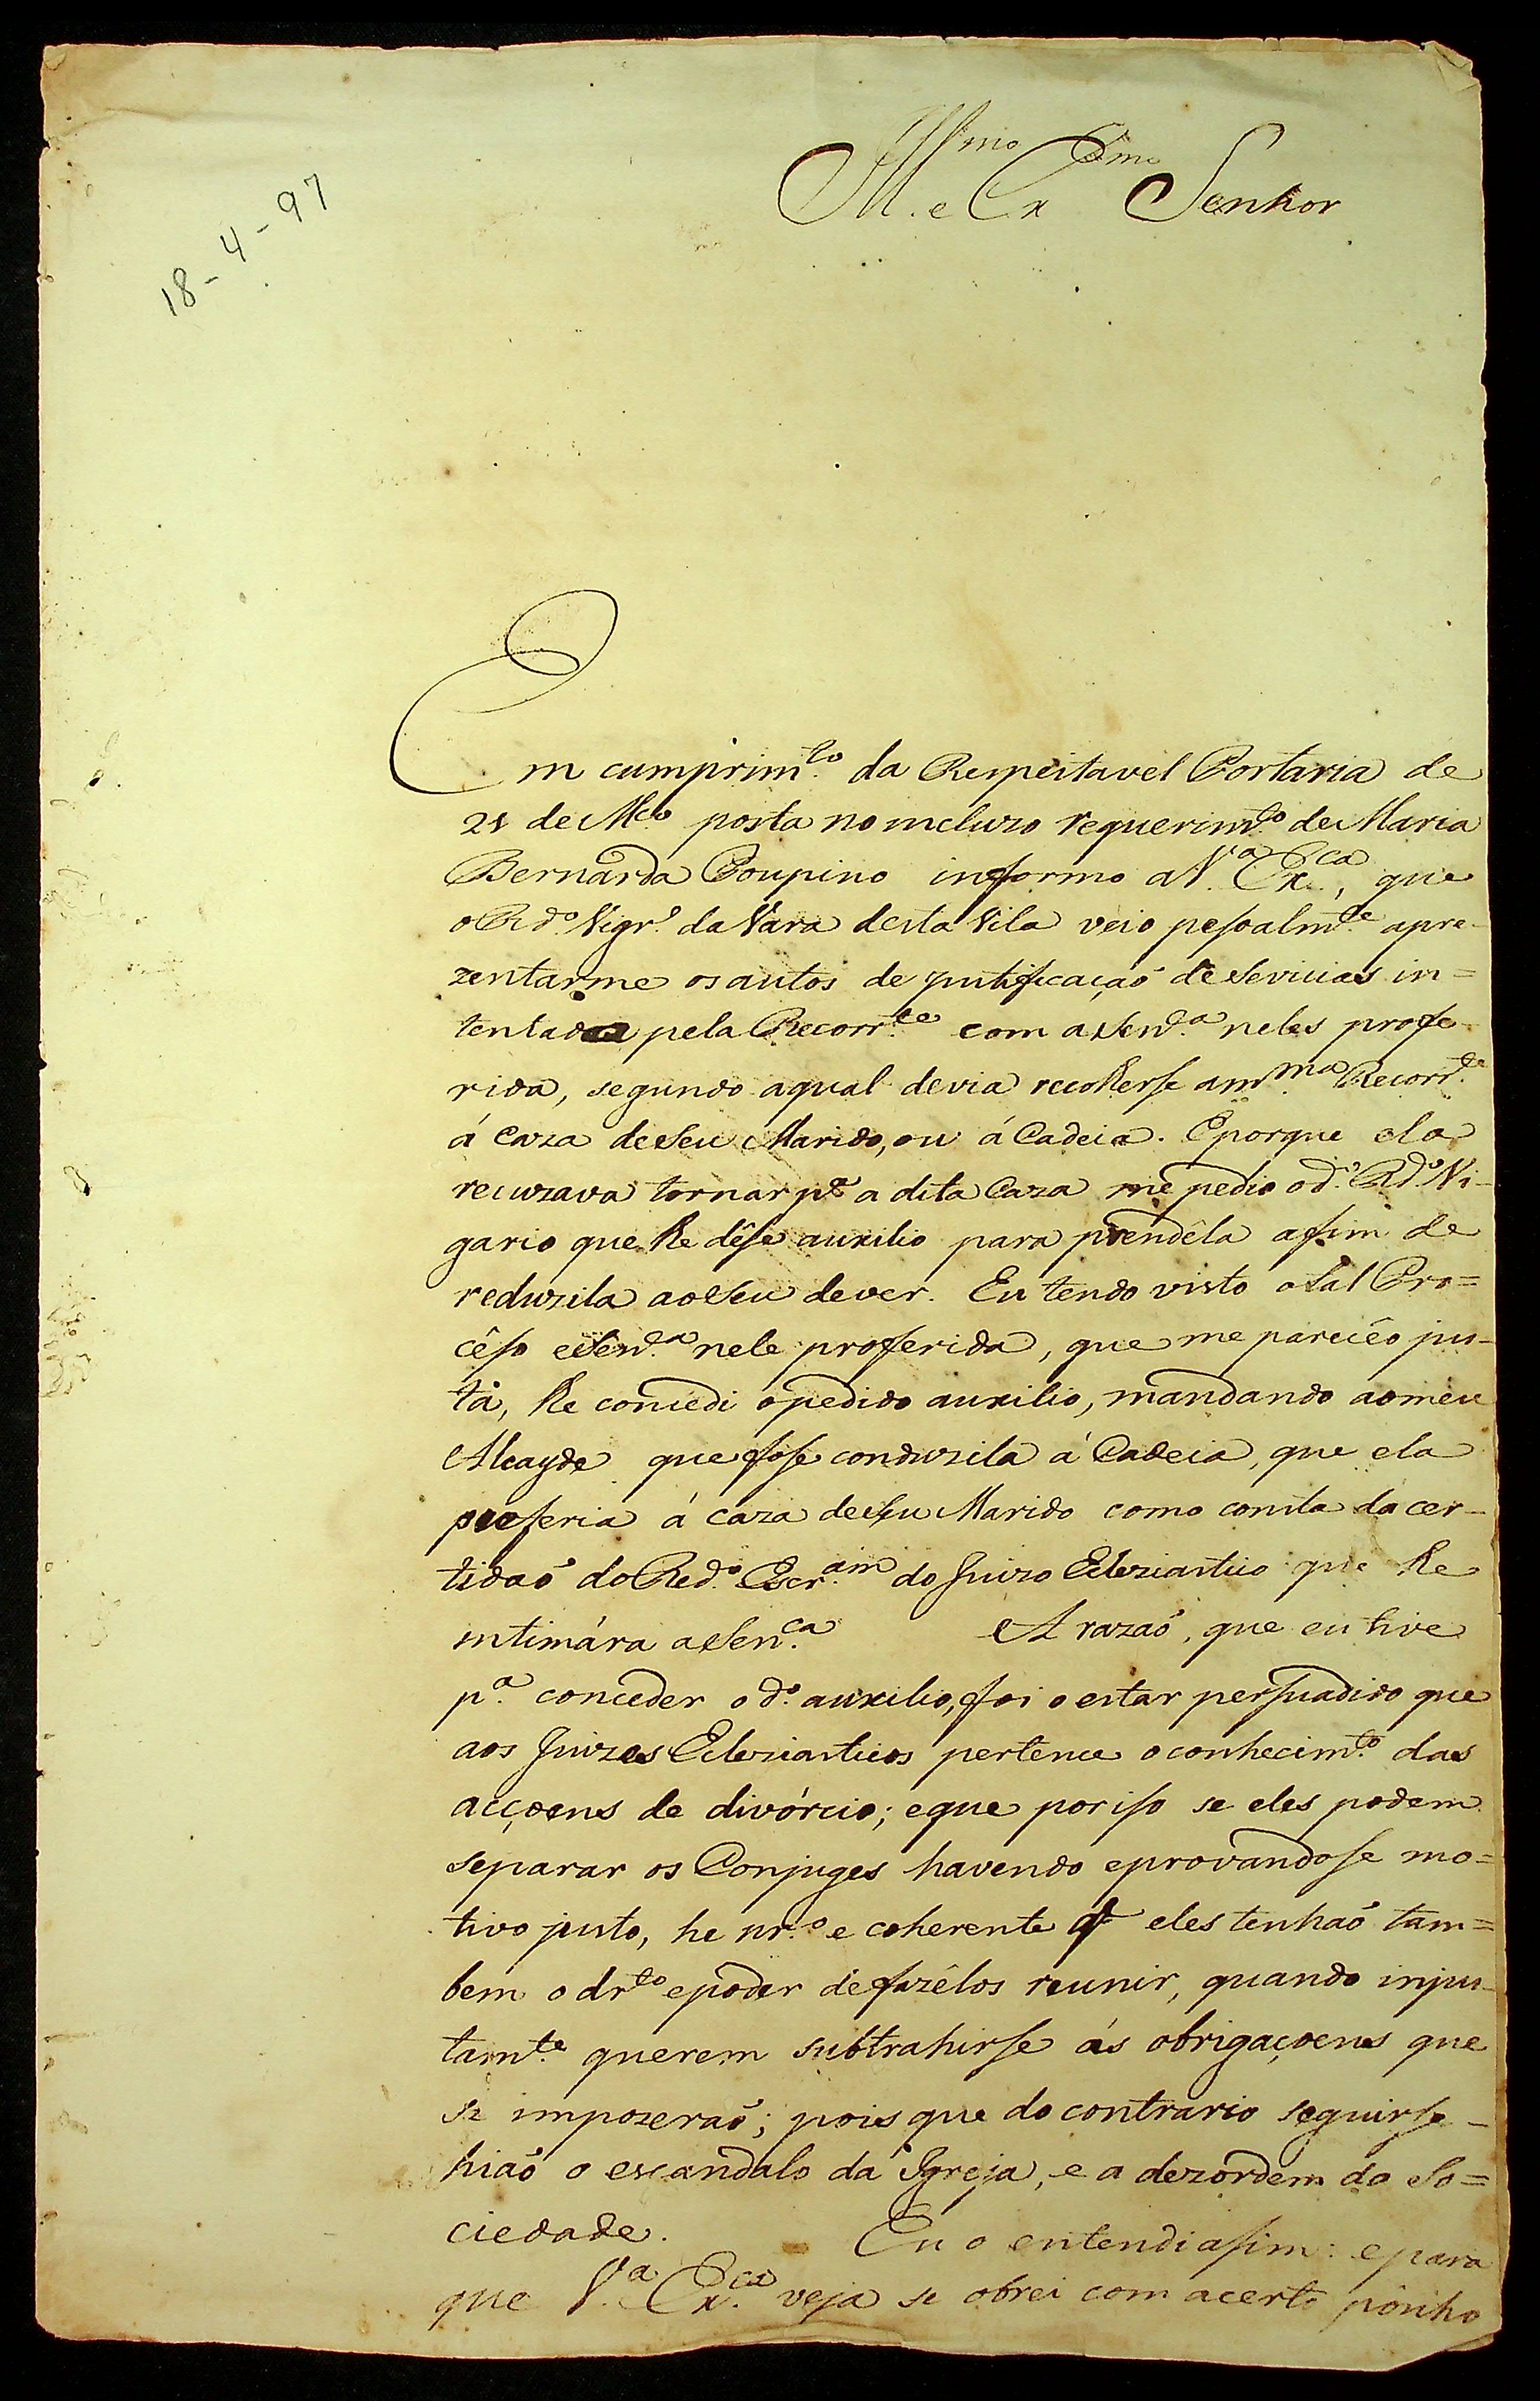 Ill.mo e Ex.mo Senhor
18-4-97
Em cumprim.to da Respeitavel Portaria de
21 de M.ço posta no incluzo requerim.to de Maria
Bernarda Poupino informo a V.a Ex.ca, que
o R.do Vigr.o da Vara desta Vila veio pesoalm.te apre-
zentarme os autos de justificaçaõ de Sevicias in=
tentada pela Recorr.te com a Sen.ça neles profe-
rida, segundo a qual devia recolherse a m.ma Recorr.te
á caza de seu Marido, ou á Cadeia. E porque ela
recuzava tornar p.a a dita Caza me pedio o d.o R.do Vi-
gario que lhe dése auxilio para prendêla afim de
reduzila ao seu dever. Eu tendo visto o tal Pro=
céso e a Sen.ça nele proferida, que me pareceo jus-
ta, lhe concedi o pedido auxilio, mandando ao meu
Alcayde que fose conduzila á Cadeia, que ela
preferia á caza de seu Marido como consta da cer-
tidaõ do Red.o Escr.am do Juizo Eclesiastico que lhe
intimára a Sen.ça A razaõ, que eu tive
p.a conceder o d.o auxilio, foi o estar persuadido que
aos Juizes Eclesiasticos pertence o conhecim.to das
acçoens de divórcio; e que por iso se eles podem
separar os Conjuges havendo e provandose mo=
tivo justo, he nr.o e coherente q̃ eles tenhaõ tam=
bem o dr.to e poder de fazêlos reunir, quando injus-
tam.te querem subtrahirse ás obrigaçoens que
se impozeraõ; pois que do contrario seguirse-
hiaõ o escandalo da Igreja, e a dezordem da So=
ciedade. Eu o entendi asim: e para
que V.a Ex.ca veja se obrei com acerto pônho